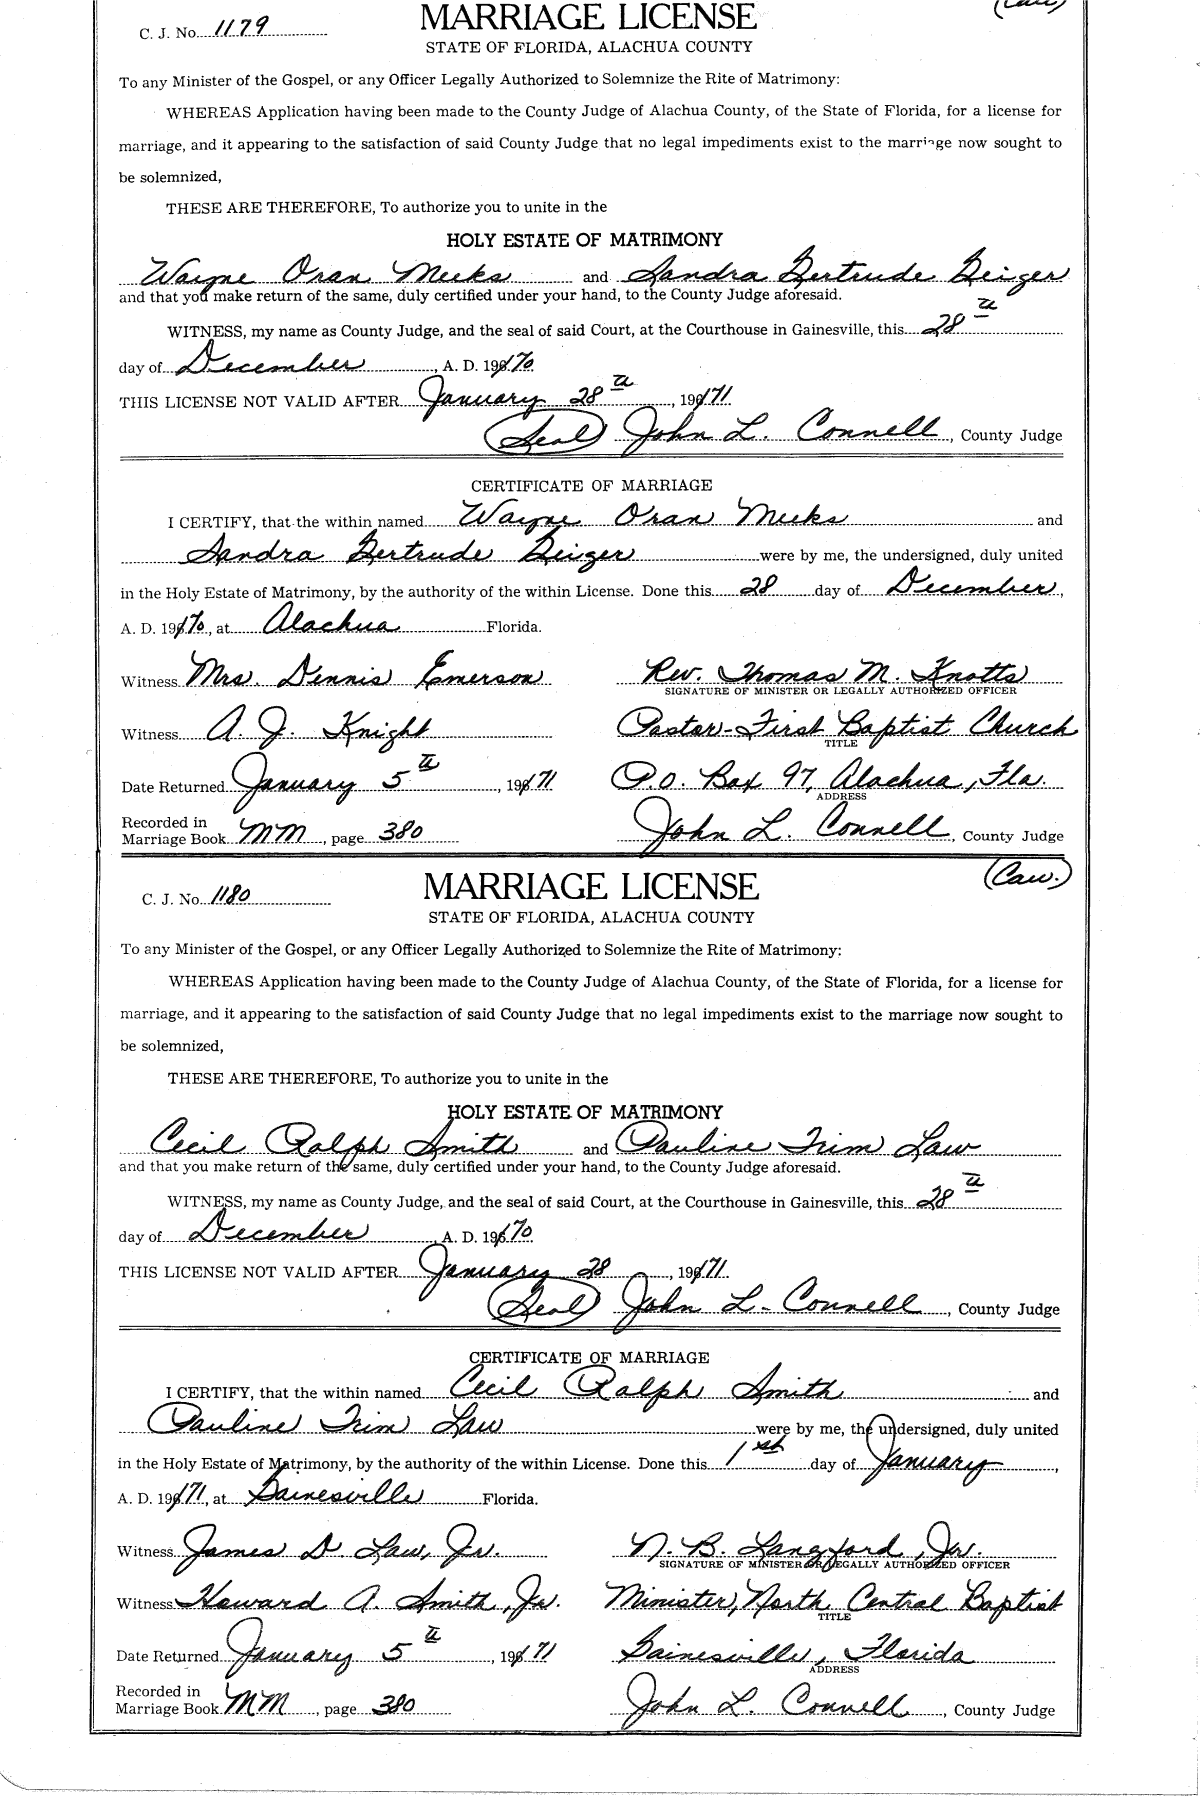 (Cau.)
C. J. No. 1179 MARRIAGE LICENSE
STATE OF FLORIDA, ALACHUA COUNTY
To any Minister of the Gospel, or any Officer Legally Authorized to Solemnize the Rite of Matrimony:
WHEREAS Application having been made to the County Judge of Alachua County, of the State of Florida, for a license for
marriage, and it appearing to the satisfaction of said County Judge that no legal impediments exist to the marriage now sought to
be solemnized,
THESE ARE THEREFORE, To authorize you to unite in the
HOLY ESTATE OF MATRIMONY
Wayne Oran Meeks and Sandra Gertrude Geiger
and that you make return of the same, duly certified under your hand, to the County Judge aforesaid.
WITNESS, my name as County Judge, and the seal of said Court, at the Courthouse in Gainesville, this 28th
day of December, A. D. 1970
THIS LICENSE NOT VALID AFTER January 28th, 1971
(Seal) John L. Connell, County Judge
CERTIFICATE OF MARRIAGE
I CERTIFY, that the within named Wayne Oran Meeks and
Sandra Gertrude Geiger were by me, the undersigned, duly united
in the Holy Estate of Matrimony, by the authority of the within License. Done this 28 day of December,
A. D. 1970, at Alachua Florida.
Witness Mrs. Dennis Emerson Rev. Thomas M. Knotts
SIGNATURE OF MINISTER OR LEGALLY AUTHORIZED OFFICER
Witness A. J. Knight Pastor-First Baptist Church
TITLE
Date Returned January 5th, 1971 P.O. Box 97, Alachua, Fla.
ADDRESS
Recorded in
Marriage Book MM, page 380 John L. Connell, County Judge
(Cau.)
C. J. No. 1180 MARRIAGE LICENSE
STATE OF FLORIDA, ALACHUA COUNTY
To any Minister of the Gospel, or any Officer Legally Authorized to Solemnize the Rite of Matrimony:
WHEREAS Application having been made to the County Judge of Alachua County, of the State of Florida, for a license for
marriage, and it appearing to the satisfaction of said County Judge that no legal impediments exist to the marriage now sought to
be solemnized,
THESE ARE THEREFORE, To authorize you to unite in the
HOLY ESTATE OF MATRIMONY
Cecil Ralph Smith and Pauline Trim Law
and that you make return of the same, duly certified under your hand, to the County Judge aforesaid.
WITNESS, my name as County Judge, and the seal of said Court, at the Courthouse in Gainesville, this 28th
day of December, A. D. 1970
THIS LICENSE NOT VALID AFTER January 28, 1971
(Seal) John L. Connell, County Judge
CERTIFICATE OF MARRIAGE
I CERTIFY, that the within named Cecil Ralph Smith and
Pauline Trim Law were by me, the undersigned, duly united
in the Holy Estate of Matrimony, by the authority of the within License. Done this 1st day of January,
A. D. 1971, at Gainesville Florida.
Witness James D. Law, Jr. N. B. Langford, Jr.
SIGNATURE OF MINISTER OR LEGALLY AUTHORIZED OFFICER
Witness Howard A. Smith, Jr. Minister, North Central Baptist
TITLE
Date Returned January 5th, 1971 Gainesville, Florida
ADDRESS
Recorded in
Marriage Book MM, page 380 John L. Connell, County Judge